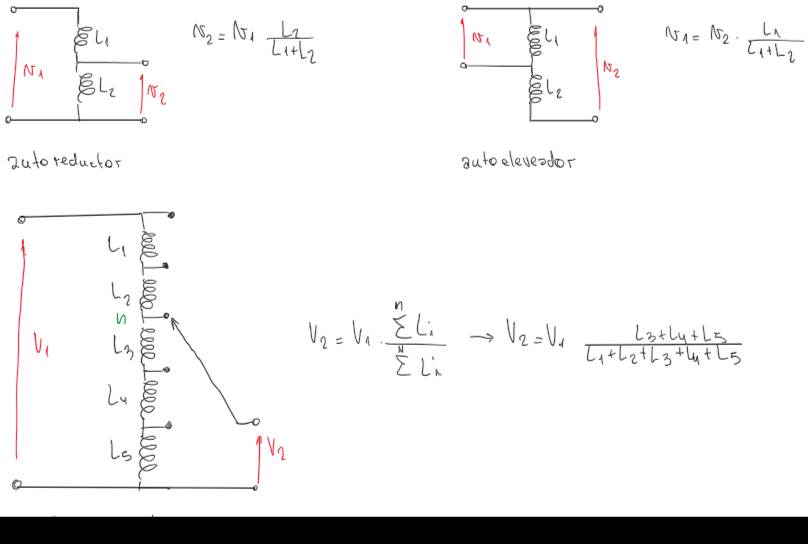 L1
L2
v1
v2
v2 = v1 L2 / L1+L2
autoreductor
L1
L2
v1
v2
v1 = v2 · L1 / L1+L2
autoelevador
L1
L2
n
L3
L4
L5
V1
V2
V2 = V1 · n∑Li / N∑Li → V2 = V1 L3+L4+L5 / L1+L2+L3+L4+L5